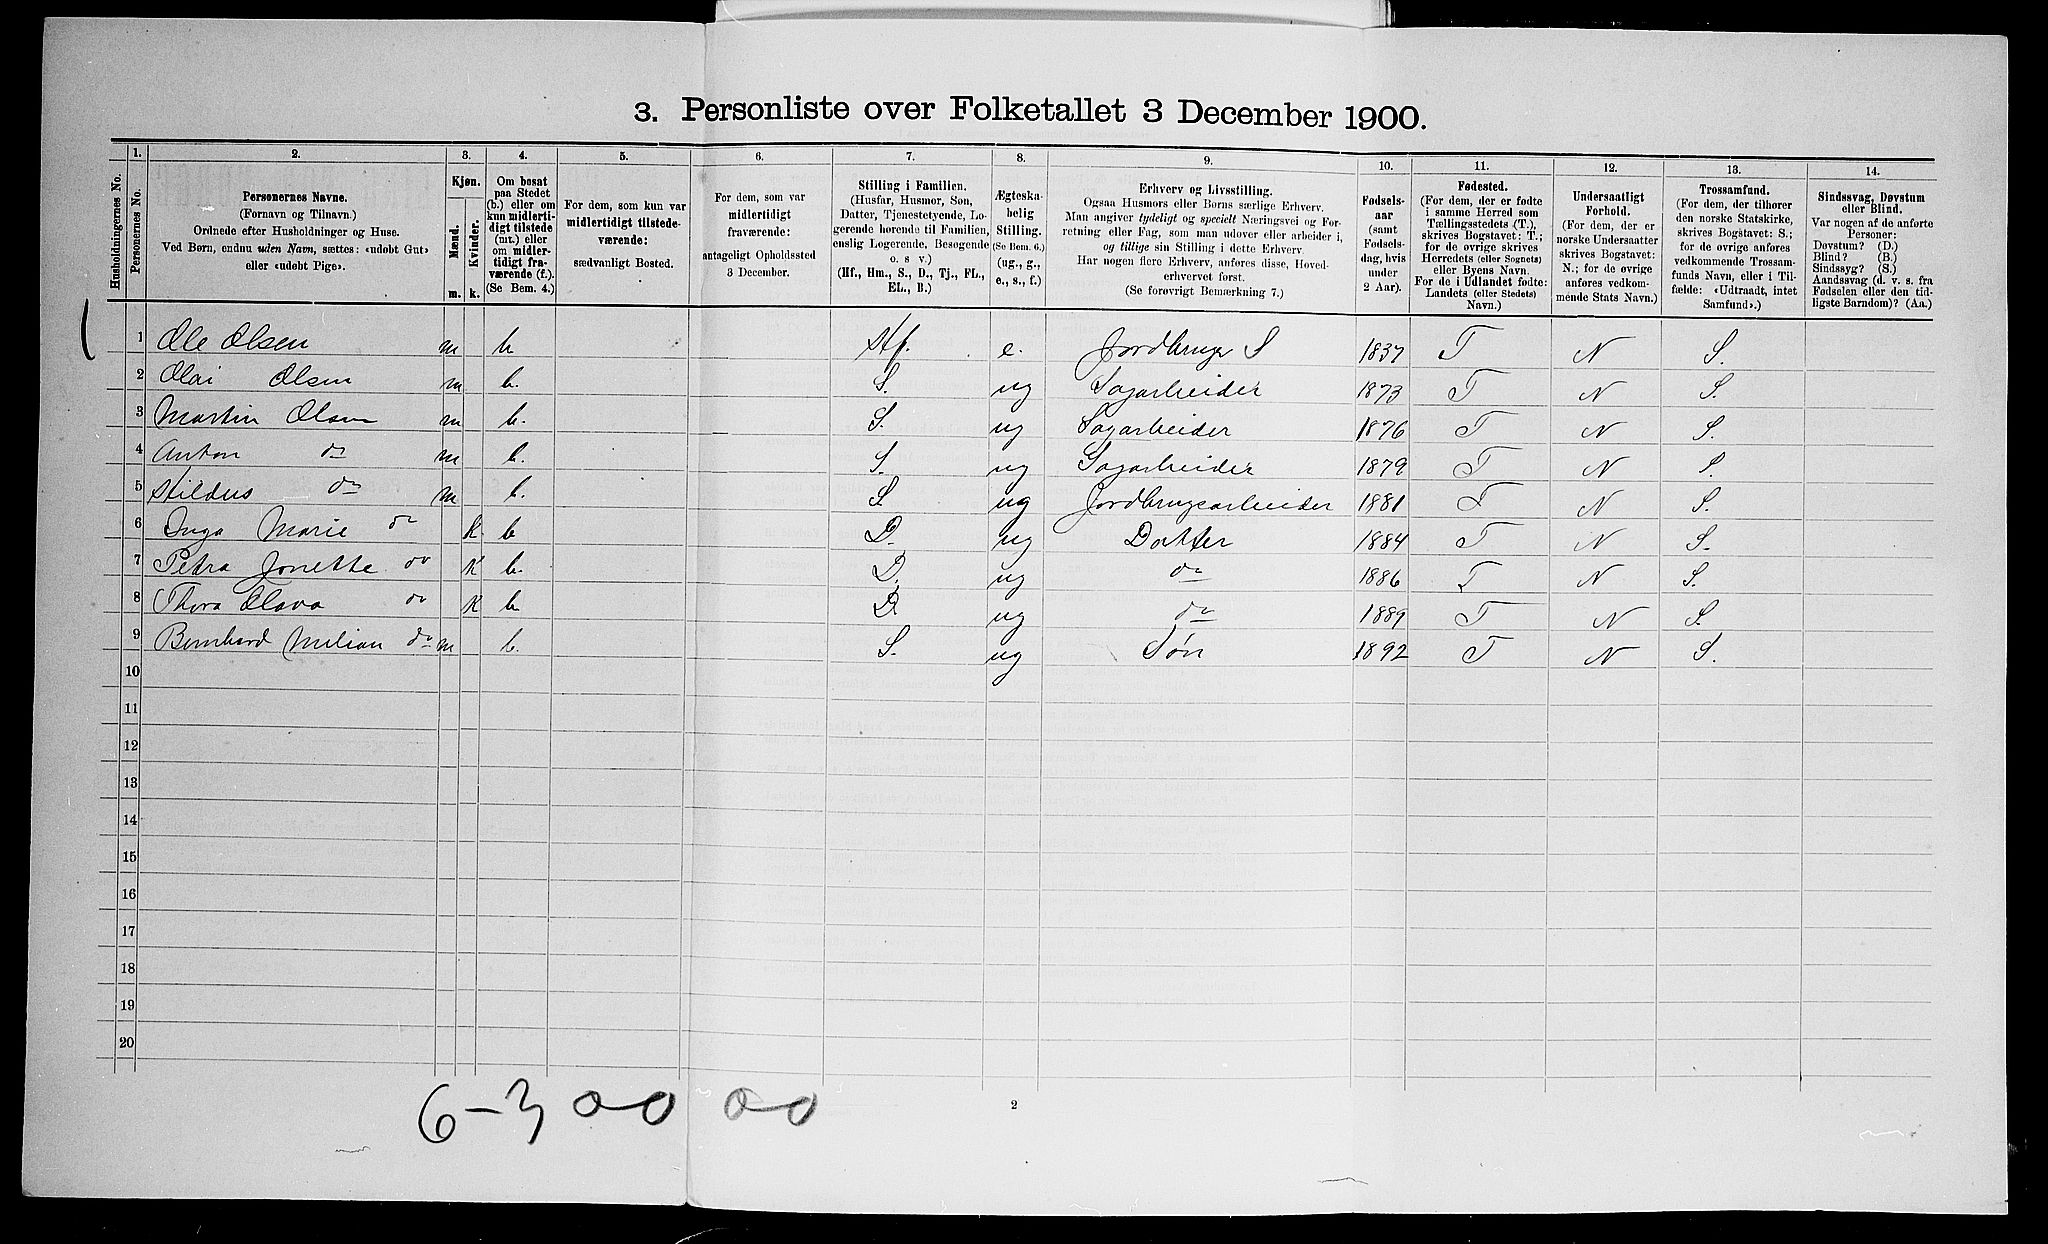 3. Personliste over Folketallet 3 December 1900.
Husholdningernes No.
1. Personernes No.
2. Personernes Navne. (Fornavn og Tilnavn.) Ordnede efter Husholdninger og Huse. Ved Børn, endnu uden Navn, sættes: «udøbt Gut» eller «udøbt Pige».
3. Kjøn. Mænd. m. Kvinder. k.
4. Om bosat paa Stedet (b.) eller om kun midlertidigt tilstede (mt.) eller om midlertidigt fraværende (f.). (Se Bem. 4.)
5. For dem, som kun var midlertidigt tilstedeværende: sædvanligt Bosted.
6. For dem, som var midlertidigt fraværende: antageligt Opholdssted 3 December.
7. Stilling i Familien. (Husfar, Husmor, Søn, Datter, Tjenestetyende, Logerende hørende til Familien, enslig Logerende, Besøgende o. s v.) (Hf., Hm., S., D., Tj., FL., EL., B.)
8. Ægteskabelig Stilling. (Se Bem. 6.) (ug., g., e., s., f.)
9. Erhverv og Livsstilling. Ogsaa Husmors eller Børns særlige Erhverv. Man angiver tydeligt og specielt Næringsvei og Forretning eller Fag, som man udøver eller arbeider i, og tillige sin Stilling i dette Erhverv. Har nogen flere Erhverv, anføres disse, Hovederhvervet først. (Se forøvrigt Bemærkning 7.)
10. Fødselsaar (samt Fødselsdag, hvis under 2 Aar).
11. Fødested. (For dem, der er fødte i samme Herred som Tællingsstedets (T.), skrives Bogstavet: T.; for de øvrige skrives Herredets (eller Sognets) eller Byens Navn. For de i Udlandet fødte: Landets (eller Stedets) Navn.)
12. Undersaatligt Forhold. (For dem, der er norske Undersaatter skrives Bogstavet: N.; for de øvrige anføres vedkommende Stats Navn.)
13. Trossamfund. (For dem, der tilhører den norske Statskirke, skrives Bogstavet: S.; for de øvrige anføres vedkommende Trossamfunds Navn, eller i Tilfælde: «Udtraadt, intet Samfund».)
14. Sindssvag, Døvstum eller Blind. Var nogen af de anførte Personer: Døvstum? (D.) Blind? (B.) Sindssyg? (S.) Aandssvag (d. v. s. fra Fødselen eller den tidligste Barndom)? (Aa.)
1 Ole Olsen m b. Hf. e. Jordbruger S 1837 T N S.
2 Olai Olsen m b. S. ug Sagarbeider 1873 T N S.
3 Martin Olsen m b. S. ug Sagarbeider 1876 T N S.
4 Anton do m b. S. ug Sagarbeider 1879 T N S.
5 Hildus do m b. S ug Jordbrugsarbeider 1881 T N S.
6 Inga Marie do K b D. ug Datter 1884 T N S.
7 Petra Jonette do K b. D. ug do 1886 T N S.
8 Thora Olava do K b D. ug do 1889 T N S.
9 Bernhard Milian do m b. S. ug Søn 1892 T N S.
10
11
12
13
14
15
16
17
18
19
20
6-3 0-0 0-0
2